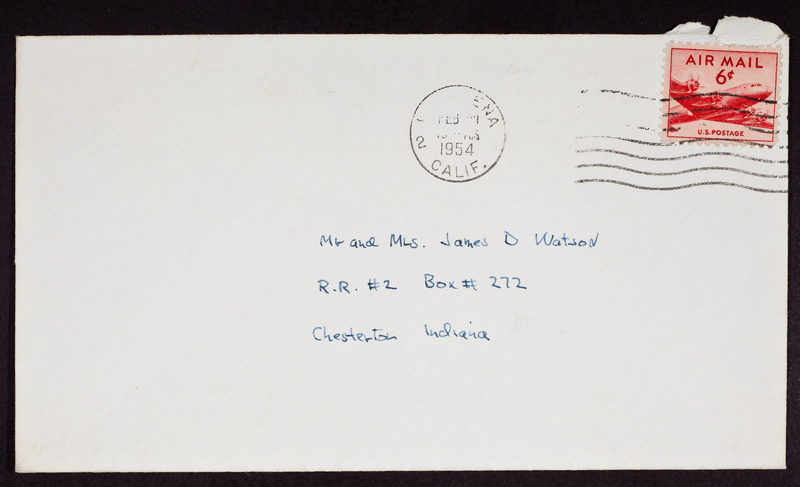 AIR MAIL
6¢
U.S. POSTAGE
ENA
2
1954
CALIF.
Mr and Mrs. James D Watson
R.R. #2 Box # 272
Chesterton Indiana